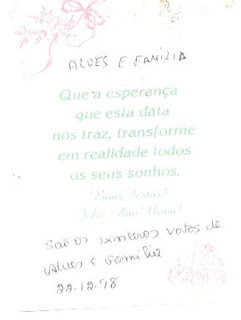 ALVES E FAMÍLIA
Que a esperança
que esta data
nos traz, transforme
em realidade todos
os seus sonhos.
"Boas Festas!
Feliz Ano Novo!"
São os sinceros votos de
Alves e Família
22.12.98